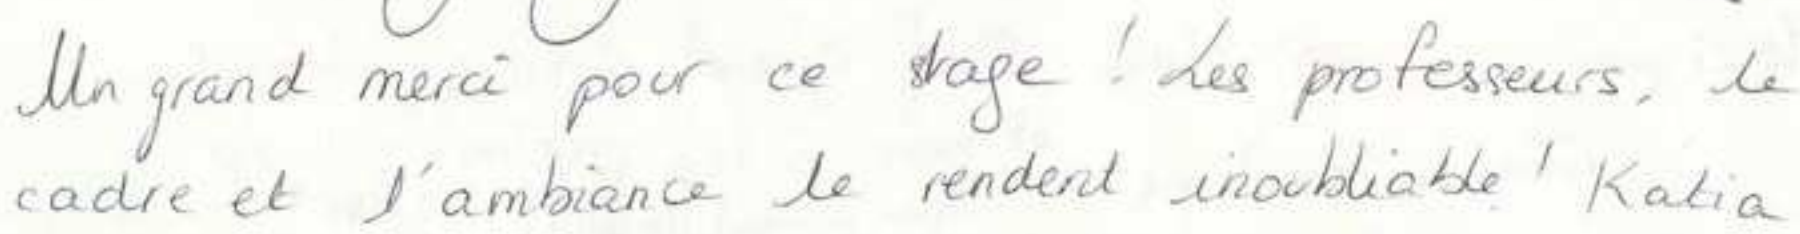 Un grand merci pour ce stage ! Les professeurs, le
cadre et l'ambiance le rendent inoubliable ! Katia